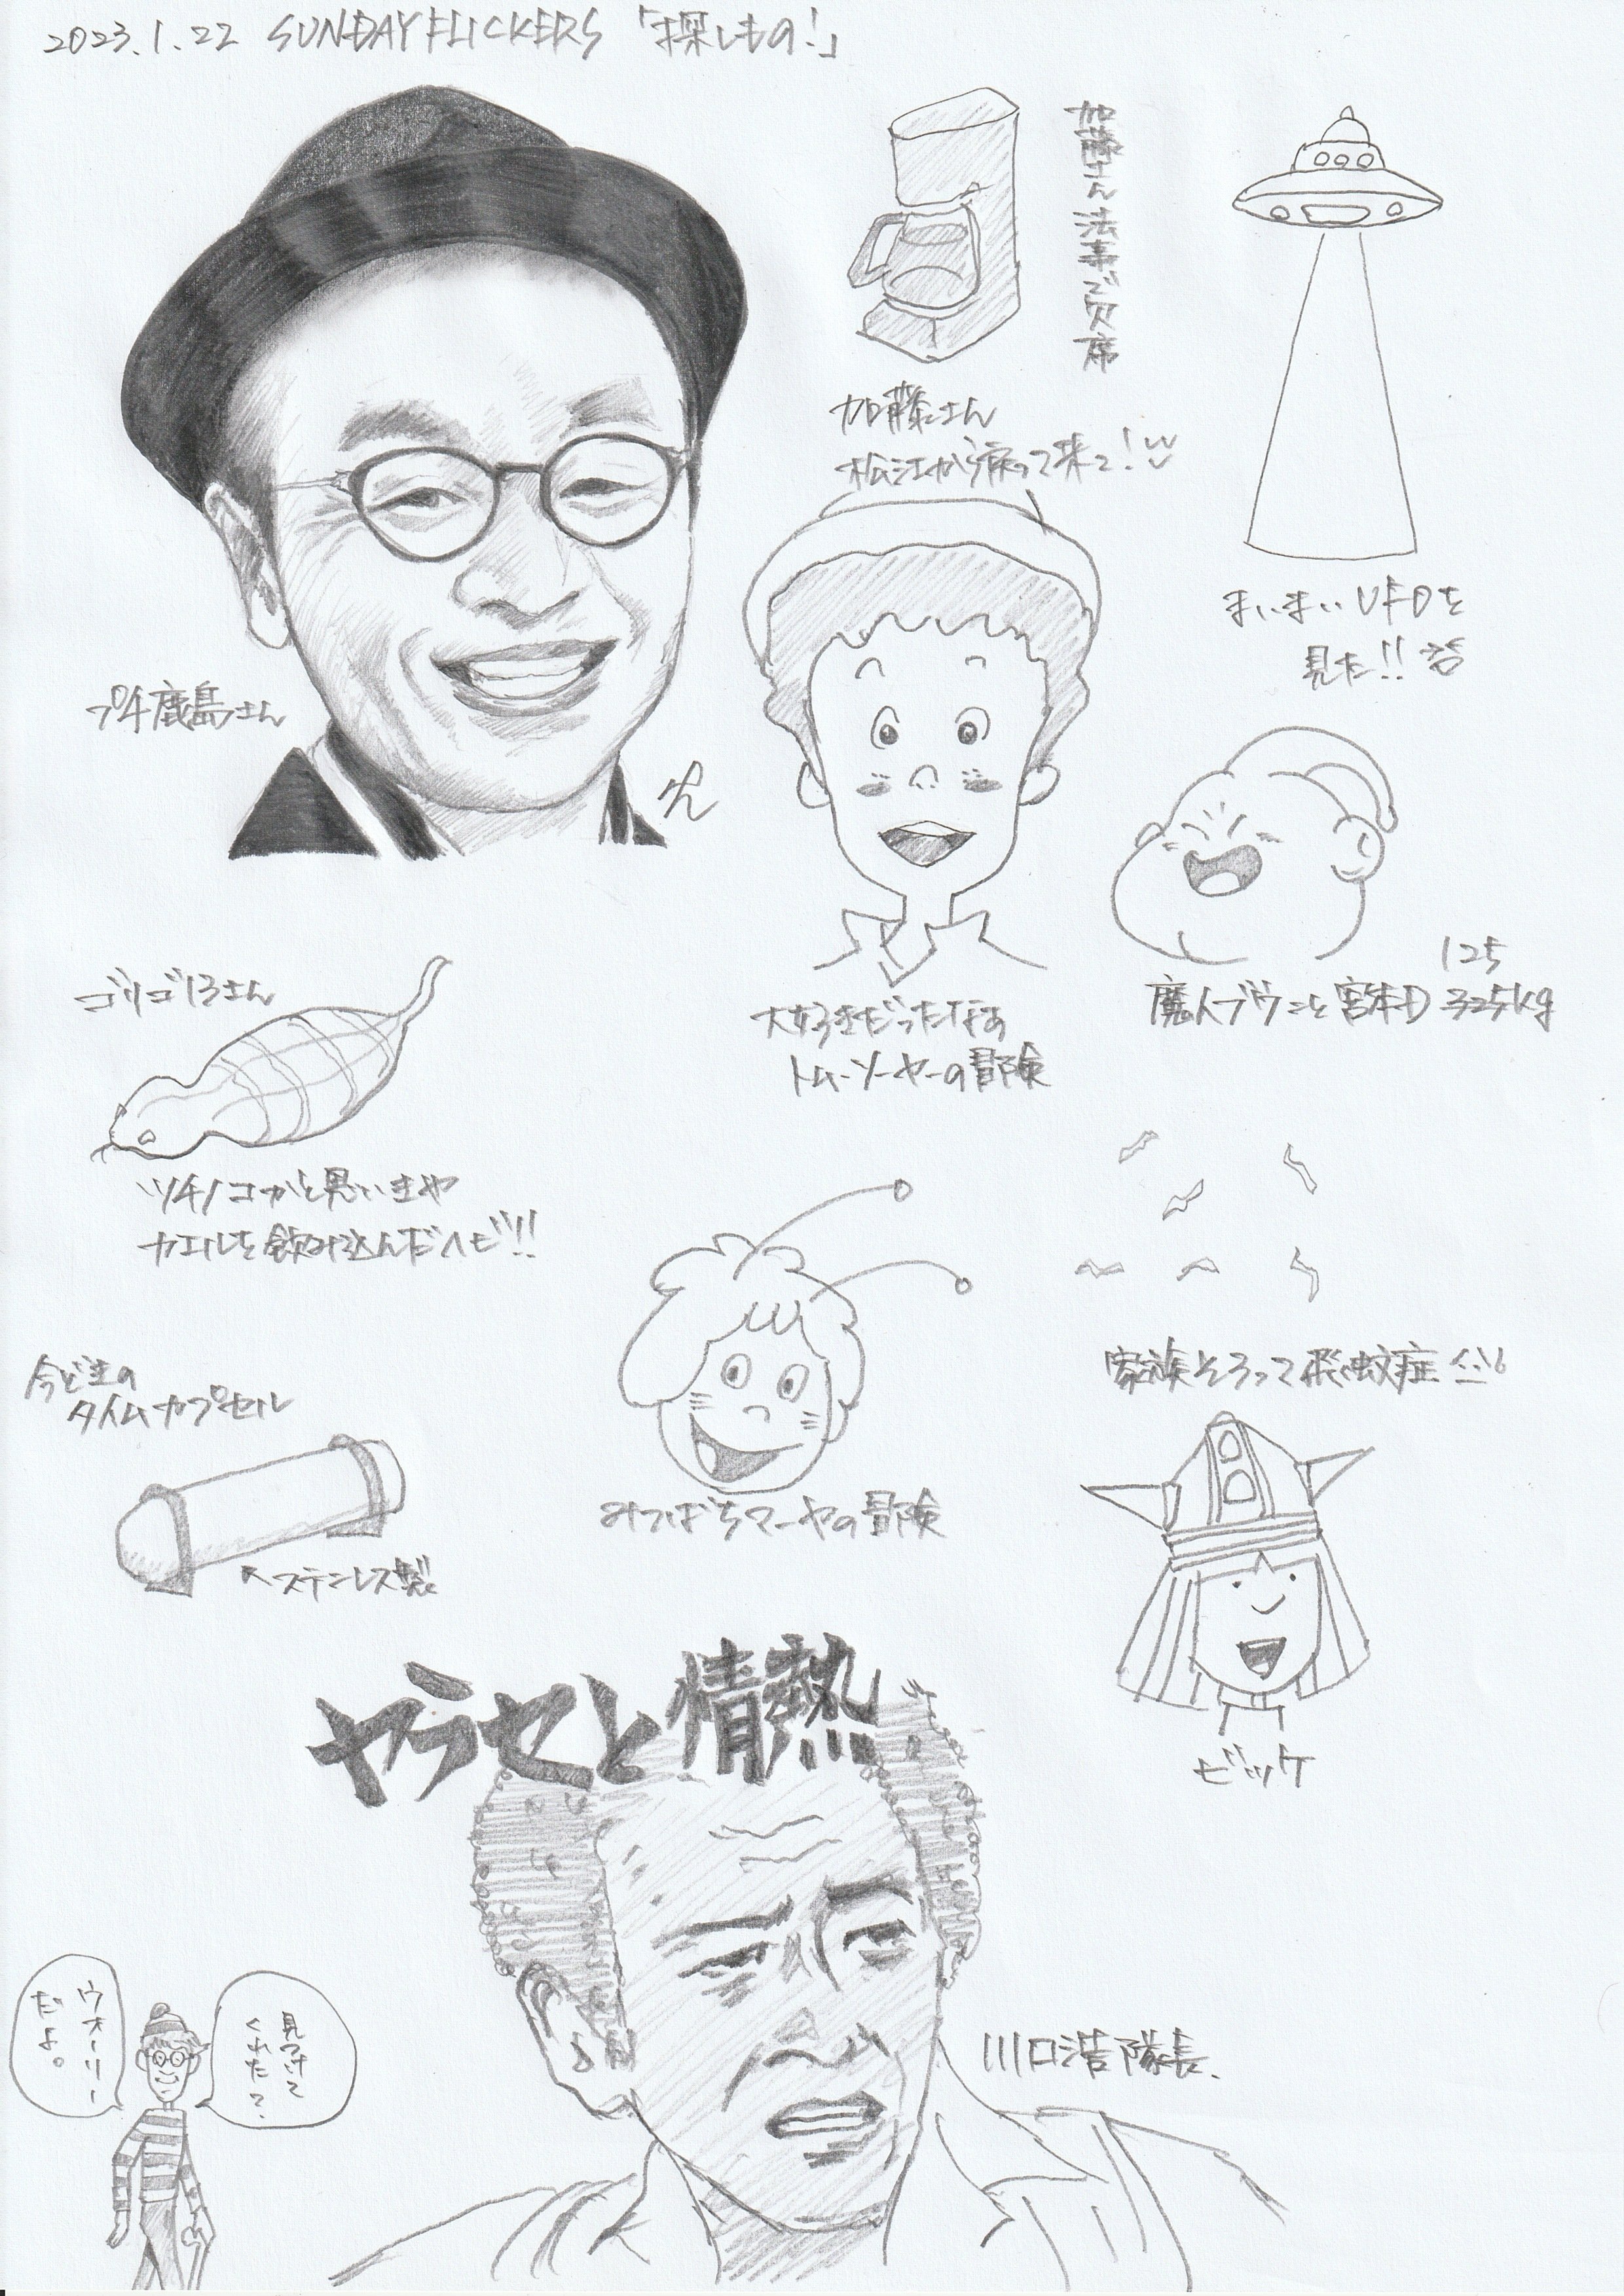 2023.1.22 SUNDAY FLICKERS 「探しもの!」
加藤さん法事で欠席
加藤さん
松江から帰って来て!
まいまいUFOを
見た!!
プチ鹿島さん
ゴリゴ13さん
大好きだったなぁ
トム・ソーヤーの冒険
125
魔人ブウこと宮本D 325kg
ツチノコかと思いきや
カエルを飲み込んだヘビ!!
家族そろって飛蚊症
今どきの
タイムカプセル
ステンレス製
みつばちマーヤの冒険
ビッケ
ヤラセと情熱
川口浩隊長
見つけて
くれた?
ウォーリー
だよ。